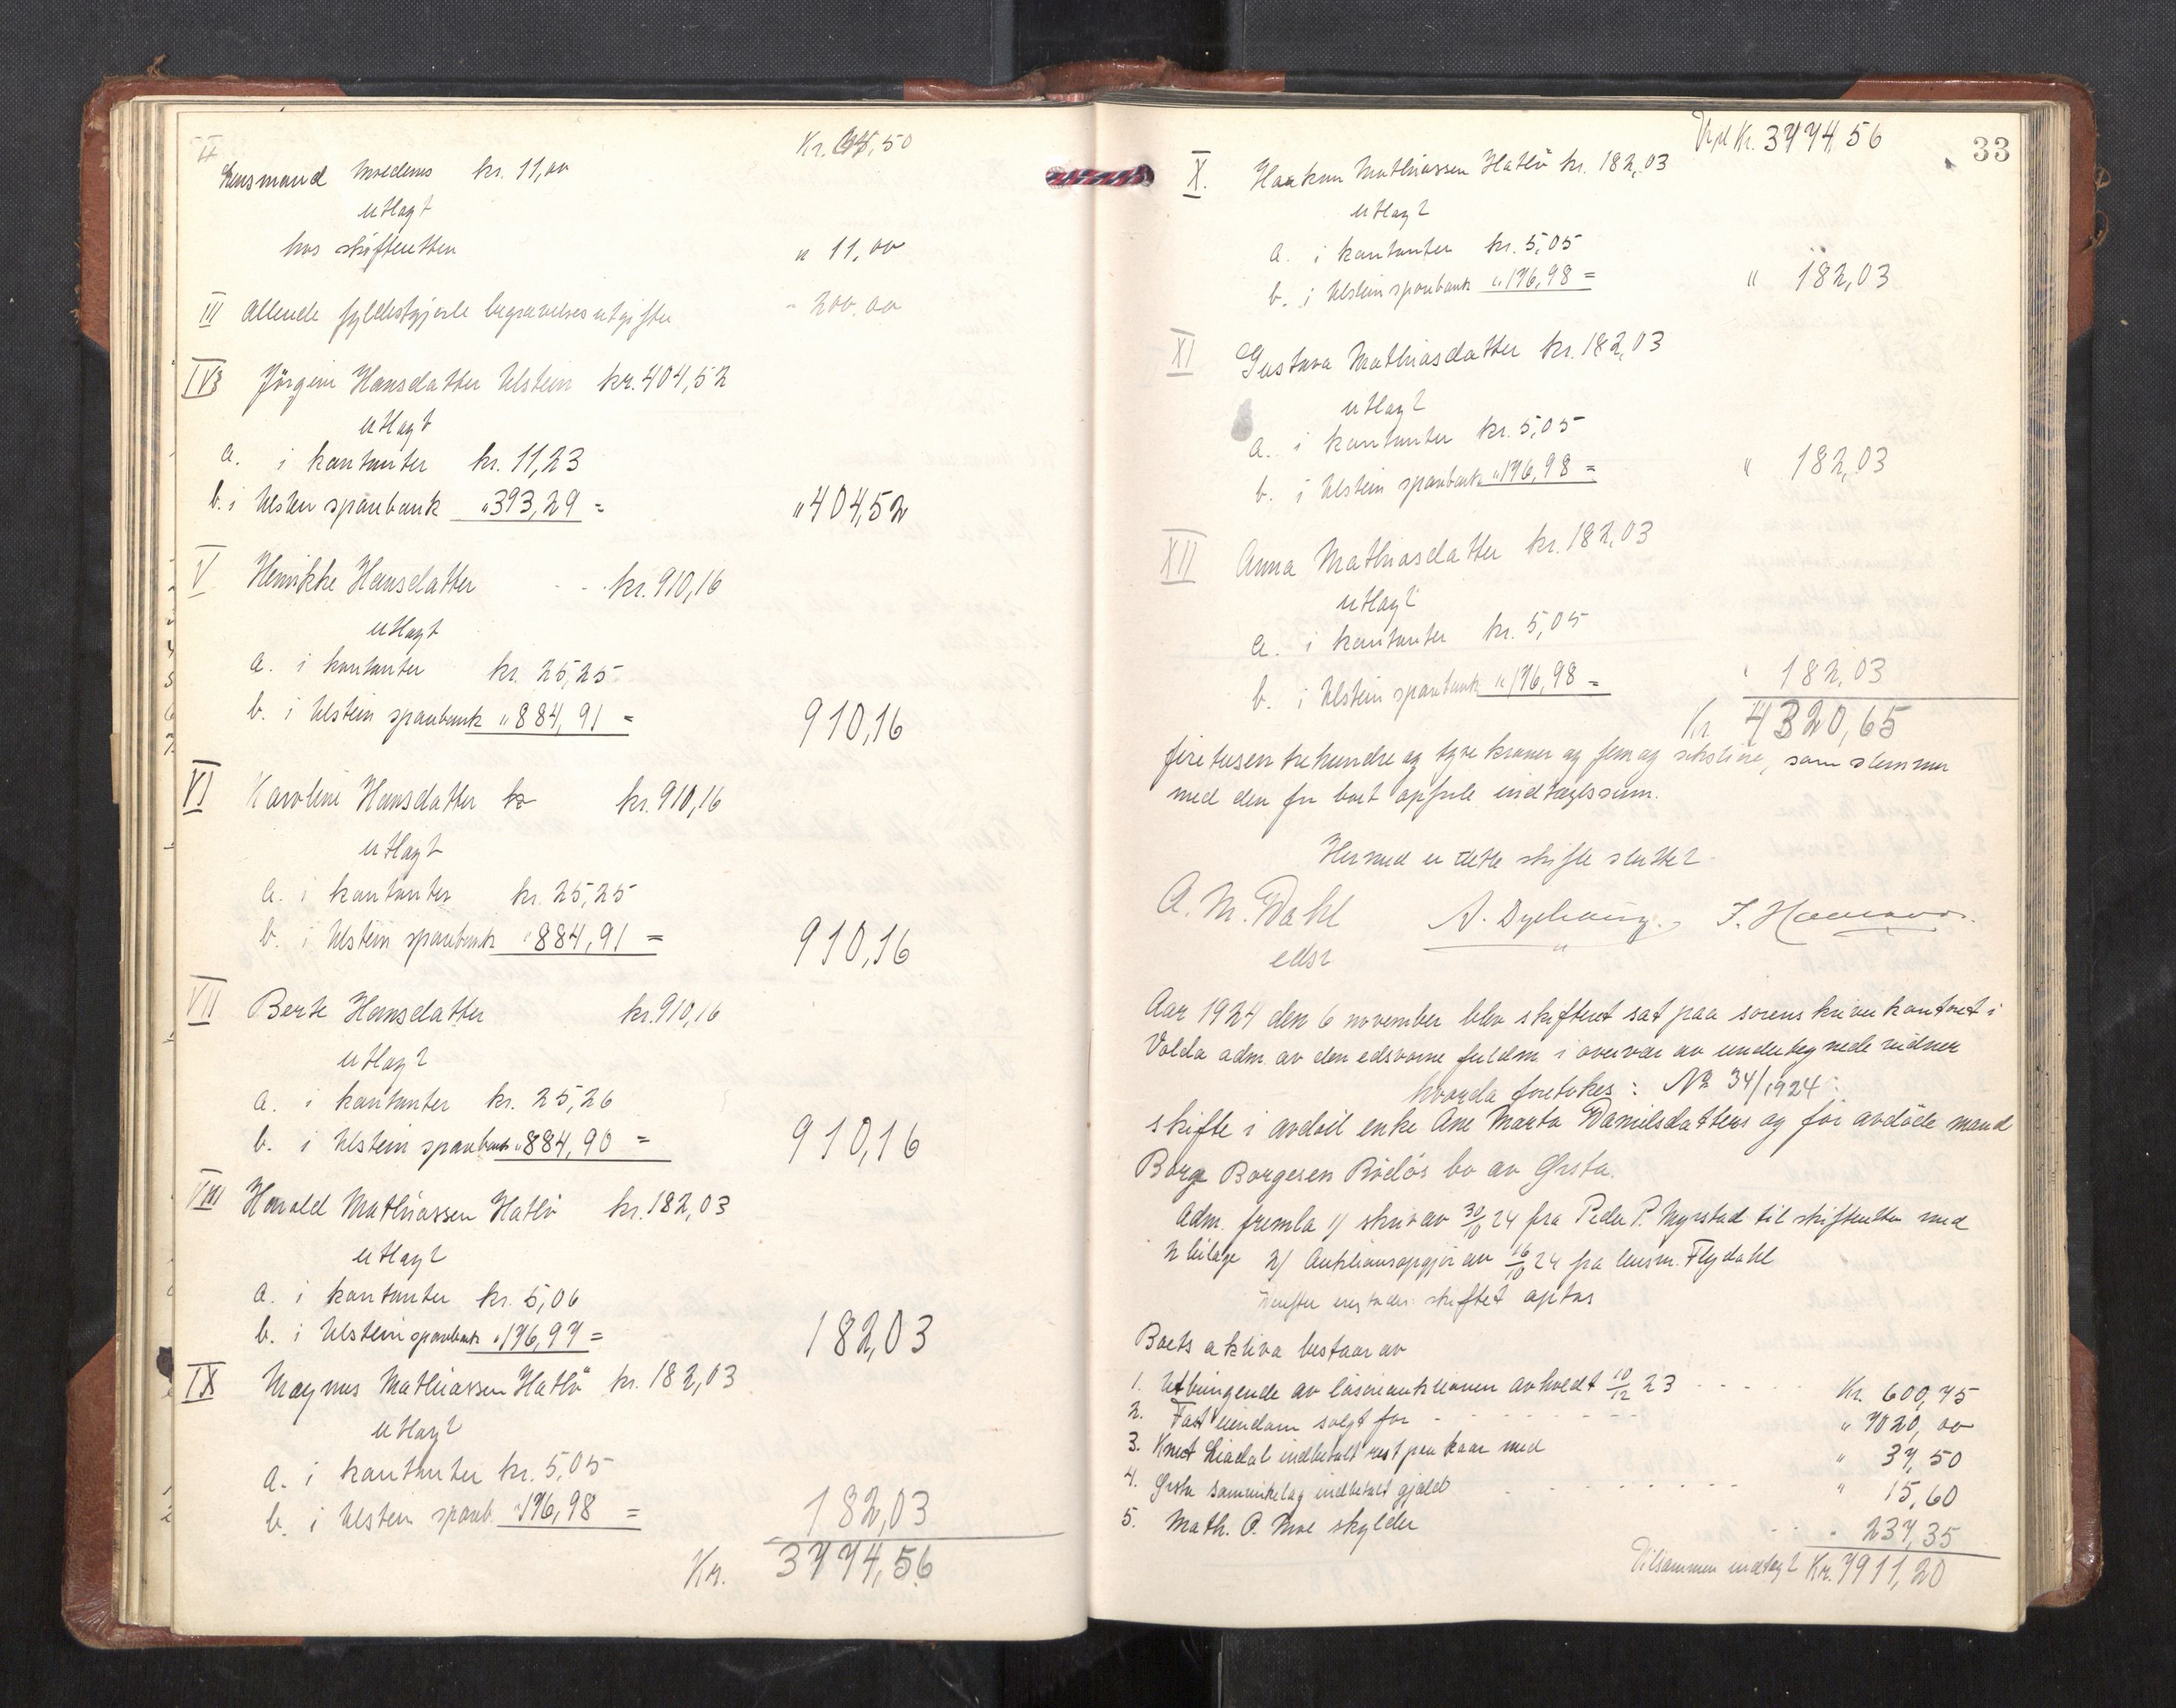 II
Kr. 64,50
Lensmand Moldens kr. 11,00
utlagt
hos skifteretten " 11,00
III Allerede fyldestgjorte begravelsesutgifter " 200,00
IV Jörgine Hansdatter Ulstein kr. 404,52
utlagt
a. i kontanter kr. 11,23
b. i Ulstein sparebank " 393,29 = " 404,52
V Henrikke Hansdatter kr. 910,16
utlagt
a. i kontanter kr. 25,25
b. i Ulstein sparebank " 884,91 = 910,16
VI Karoline Hansdatter kr kr. 910,16
utlagt
a. i kontanter kr. 25,25
b. i Ulstein sparebank " 884,91 = 910,16
VII Berte Hansdatter kr. 910,16
utlagt
a. i kontanter kr. 25,26
b. i Ulstein sparebank " 884,90 = 910,16
VIII Harald Mathiassen Hatlö kr. 182,03
utlagt
a. i kontanter kr. 5,06
b. i Ulstein sparebank " 176,97 = 182,03
IX Magnus Mathiassen Hatlö kr. 182,03
utlagt
a. i kontanter kr. 5,05
b. i Ulstein spareb. " 176,98 = 182,03
Kr. 3774,56
33
Kr. 3774,56
X. Haakon Mathiassen Hatlö kr. 182,03
utlagt
a. i kontanter kr. 5,05
b. i Ulstein sparebank " 176,98 = " 182,03
XI Gustava Mathiasdatter kr. 182,03
utlagt
a. i kontanter kr. 5,05
b. i Ulstein sparebank " 176,98 = " 182,03
XII Anna Mathiasdatter kr. 182,03
utlagt
a. i kontanter kr. 5,05
b. i Ulstein sparebank " 176,98 = " 182,03
Kr. 4320,65
fire tusen trehundre og tyve kroner og fem og seksti öre, som stemmer
med den for boet opförte indtægtssum.
Hermed er dette skifte sluttet.
A. M. Dahl
edsv
Aar 1924 den 6 november blev skifteret sat paa sorenskriverkontoret i
Volda adm. av den edsvorne fuldm. i overvær av undertegnede vidner
hvorda foretokes: No 34/1924:
skifte i avdöd enke Ane Marta Danielsdatters og för avdöde mand
Borge Borgesen Rödös bo av Ørsta.
Adm. fremla 1/ skriv av 30/10 24 fra Peder P. Myrstad til skifteretten med
2 bilage 2/ Auktionsopgjör av 16/10 24 fra lensm. Flydahl
Derefter skiftet optas
Boets aktiva bestaar av
1. Utbringende av lösöreauktionen avholdt 10/12 23 Kr. 600,75
2. Fast eiendom solgt for " 7020,00
3. Knut Liadal indbetalt rest paa kaar med " 37,50
4. Ørsta samvirkelag indbetalt gjæld " 15,60
5. Math. P. Moe skylder " 237,35
Tilsammen indtægt Kr. 7911,20